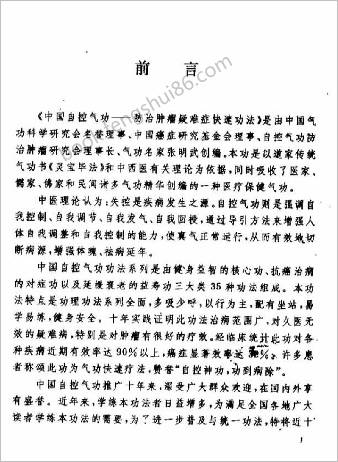 前言
《中国自控气功——防治肿瘤疑难症快速功法》是由中国气
功科学研究会名誉理事、中国癌症研究基金会理事、自控气功防
治肿瘤研究会理事长、气功名家张明武创编。本功是以道家传统
气功书《灵宝毕法》和中西医有关理论为依据,同时吸收了医家、
儒家、佛家和民间诸多气功精华创编的一种医疗保健气功。
中医理论认为:失控是疾病发生之源。自控气功则是强调自
我控制、自我调节、自我发气、自我回授,通过导引方法来增强人
体自我调整和自我控制的能力,使真气正常运行,从而有效地切
断病源,增强体魂、祛病延年。
中国自控气功功法系列是由健身益智的核心功、抗癌治病
的对症功以及延缓衰老的益寿功三大类35种功法组成。本功
法特点是功理功法系列全面,多吸少呼,以行为主,配有坐站,易
学易练,健身安全。十年实践证明此功法治病范围广,对久医无
效的疑难病,特别是对肿瘤有很好的疗效。经临床统计此功对各
种疾病近期有效率达90%以上,癌症显著效率达%。许多患
者称颂此功为气功快速疗法,赞誉“自控神功,功到病除”。
中国自控气功推广十年来,深受广大群众欢迎,在国内外享
有盛誉。近年来,学练本功法者日益增多,为满足全国各地广大
读者学练本功法的需要,为了进一步普及与统一功法,特将近十
1